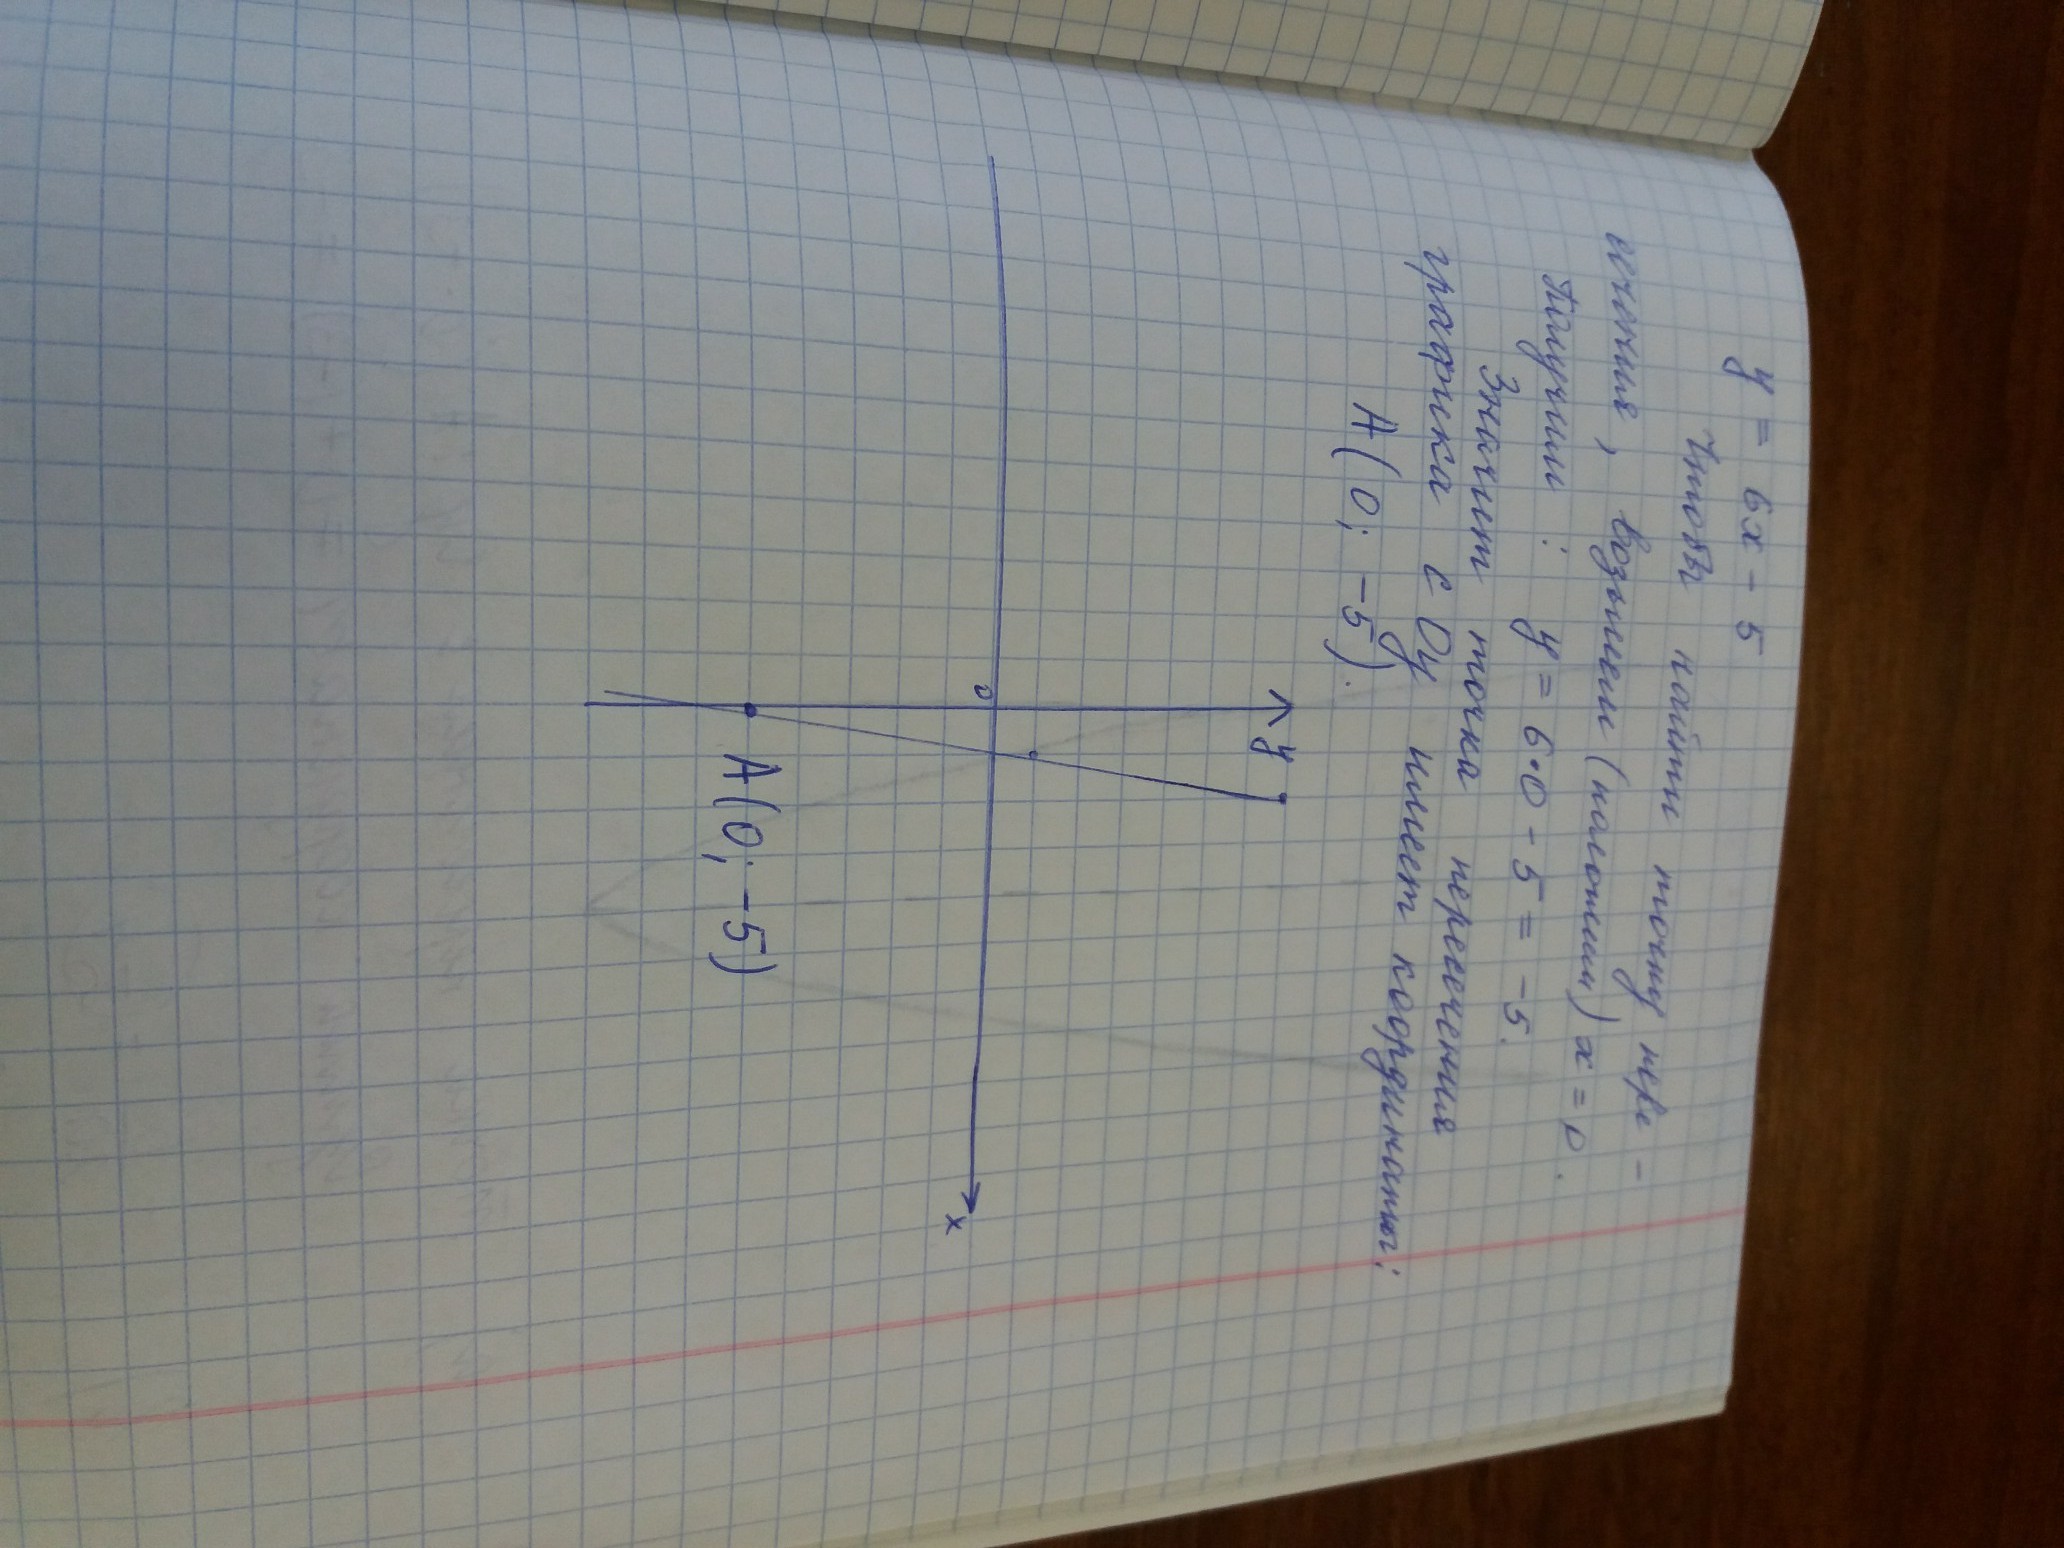 y = 6x - 5
Чтобы найти точку пере-
сечения, возьмем (положим) x = 0.
Получим: y = 6·0 - 5 = -5.
Значит точка пересечения
графика с Oy имеет координаты:
A(0; -5).
y
0
x
A(0; -5)